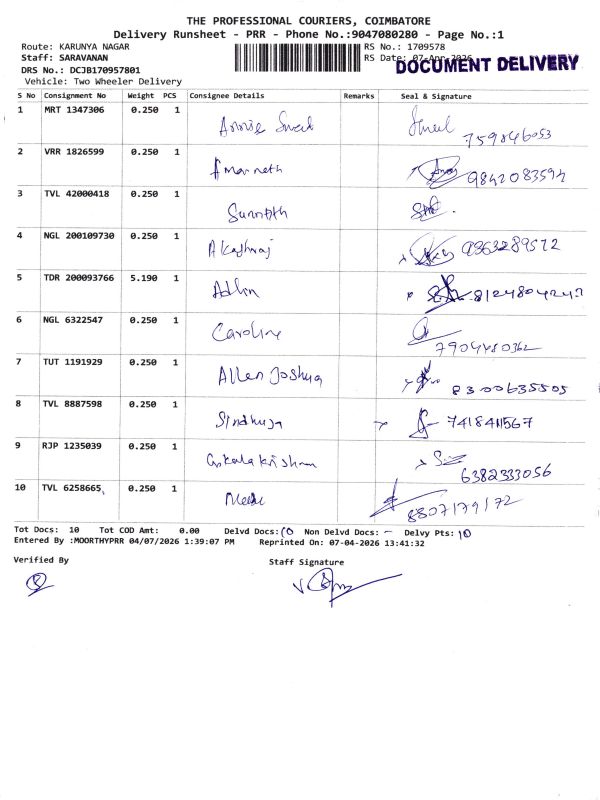 THE PROFESSIONAL COURIERS, COIMBATORE
Delivery Runsheet - PRR - Phone No.:9047080280 - Page No.:1
Route: KARUNYA NAGAR RS No.: 1709578
Staff: SARAVANAN RS Date: 07-Apr-2026
DOCUMENT DELIVERY
DRS No.: DCJB170957801
Vehicle: Two Wheeler Delivery
S No Consignment No Weight PCS Consignee Details Remarks Seal & Signature
1 MRT 1347306 0.250 1
759846053
2 VRR 1826599 0.250 1 Amarnath 9842083594
3 TVL 42000418 0.250 1
4 NGL 200109730 0.250 1 Akashraj 9363289572
5 TDR 200093766 5.190 1 Adlin
6 NGL 6322547 0.250 1 Caroline
7904480362
7 TUT 1191929 0.250 1 Allen Joshua
8300635505
8 TVL 8887598 0.250 1 Sindhuja 7418411567
9 RJP 1235039 0.250 1
6382333056
10 TVL 6258665 0.250 1
8807179172
Tot Docs: 10 Tot COD Amt: 0.00 Delvd Docs: 10 Non Delvd Docs: - Delvy Pts: 10
Entered By :MOORTHYPRR 04/07/2026 1:39:07 PM Reprinted On: 07-04-2026 13:41:32
Verified By Staff Signature